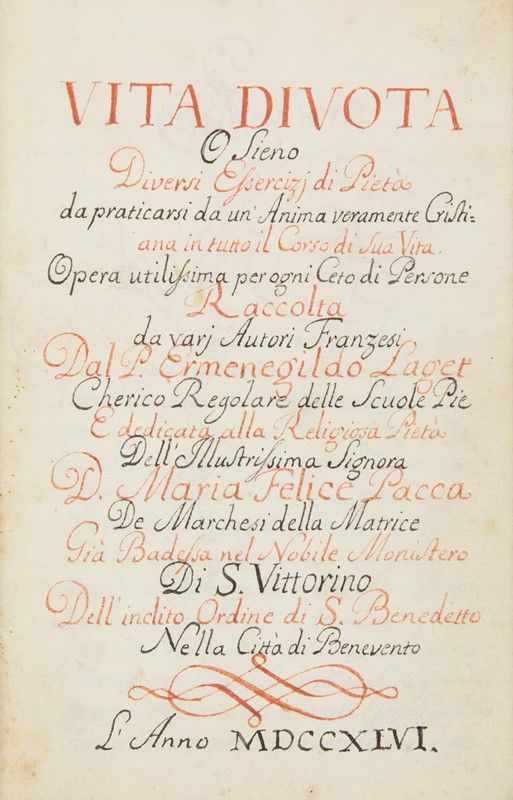 VITA DIVOTA
O Sieno
Diversi Essercizj di Pietà
da praticarsi da un' Anima veramente Cristi=
ana in tutto il Corso di Sua Vita.
Opera utilissima per ogni Ceto di Persone
Raccolta
da varj Autori Franzesi
Dal P. Ermenegildo Laget
Cherico Regolare delle Scuole Pie
E dedicata alla Religiosa Pietà
Dell' Illustrissima Signora
D. Maria Felice Pacca
De Marchesi della Matrice
Già Badessa nel Nobile Monistero
Di S. Vittorino
Dell' inclito Ordine di S. Benedetto
Nella Città di Benevento
L' Anno MDCCXLVI.